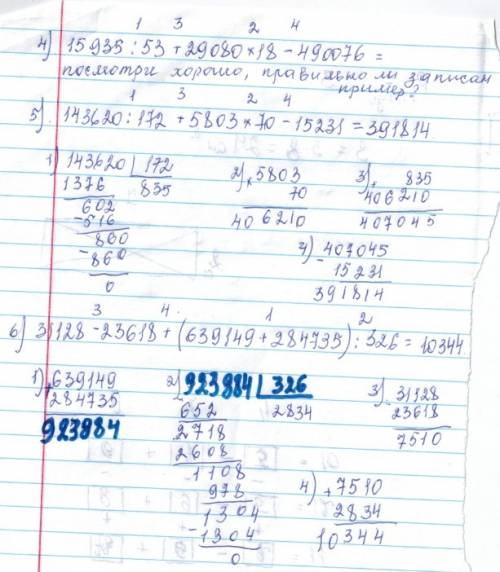 1 3 2 4
4) 15935 : 53 + 29080 × 18 - 490076 =
посмотри хорошо, правильно ли записан
пример?
1 3 2 4
5) 143620 : 172 + 5803 × 70 - 15231 = 391814
1) 143620 | 172
1376 835
602
- 516
860
- 860
0
2) × 5803
70
406210
3) + 835
406210
407045
4) 407045
- 15231
391814
3 4 1 2
6) 31128 - 23618 + (639149 + 284735) : 326 = 10344
1) + 639149
284735
923884
2) 923884 | 326
652 2834
2718
2608
- 1108
978
1304
- 1304
0
3) 31128
- 23618
7510
4) + 7510
2834
10344